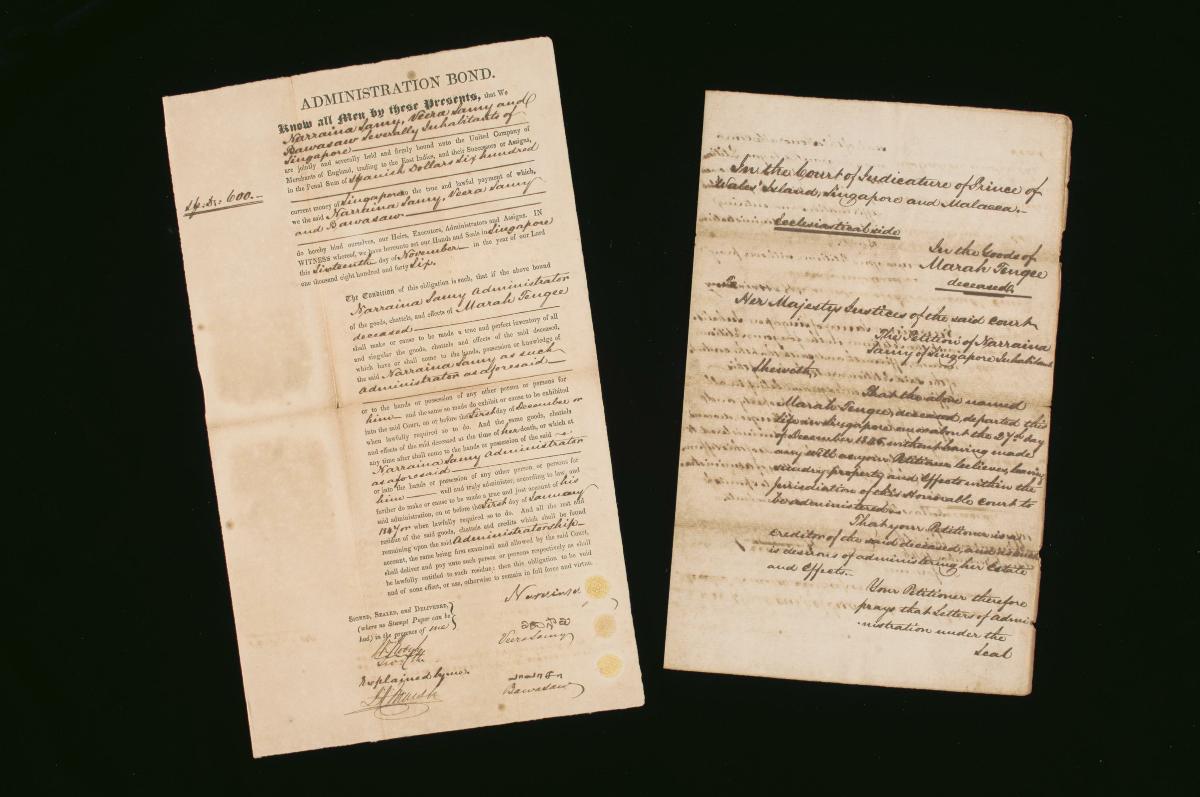 ADMINISTRATION BOND.
Know all Men by these Presents, that We
Narraina Samy, Veera Samy and
Bawasaw Severally Inhabitants of
Singapore
are jointly and severally held and firmly bound unto the United Company of
Merchants of England, trading to the East Indies, and their Successors or Assigns,
in the Penal Sum of Spanish Dollars Six hundred
Sp. Drs. 600.-
current money of Singapore to the true and lawful payment of which,
we the said Narraina Samy, Veera Samy
and Bawasaw
do hereby bind ourselves, our Heirs, Executors, Administrators and Assigns. IN
WITNESS whereof, we have hereunto set our Hands and Seals in Singapore
this Sixteenth day of November in the year of our Lord
one thousand eight hundred and forty Six.
The Condition of this obligation is such, that if the above bound
Narraina Samy Administrator
of the goods, chattels, and effects of Marah Tengee
deceased
shall make or cause to be made a true and perfect inventory of all
and singular the goods, chattels and effects of the said deceased,
which have or shall come to the hands, possession or knowledge of
the said Narraina Samy as such
administrator as aforesaid
or to the hands or possession of any other person or persons for
him and the same so made do exhibit or cause to be exhibited
into the said Court, on or before the first day of December or
when lawfully required so to do. And the same goods, chattels
and effects of the said deceased at the time of her death, or which at
any time after shall come to the hands or possession of the said
Narraina Samy Administrator
as aforesaid
or into the hands or possession of any other person or persons for
him well and truly administer, according to law, and
further do make or cause to be made a true and just account of his
said administration, on or before the first day of January
1847 or when lawfully required so to do. And all the rest and
residue of the said goods, chattels and credits which shall be found
remaining upon the said Administratorship
account, the same being first examined and allowed by the said Court,
shall deliver and pay unto such person or persons respectively as shall
be lawfully entitled to such residue; then this obligation to be void
and of none effect, or use, otherwise to remain in full force and virtue.
SIGNED, SEALED, AND DELIVERED,
(where no Stampt Paper can be
had,) in the presence of me
Veera Samy
Explained by me.
Bawasaw
In the Court of Judicature of Prince of
Wales' Island, Singapore and Malacca.
Ecclesiastical side
In the Goods of
Marah Tengee
deceased
To
Her Majestys Justices of the said Court
The Petition of Narraina
Samy of Singapore Inhabitant
Sheweth,
That the above named
Marah Tengee, deceased, departed this
life in Singapore on or about the 27th day
of December 1845 without having made
any will as your Petitioner believes, leaving
sundry property and Effects within the
jurisdiction of this Honorable Court to
be administered.
That your Petitioner is a
creditor of the said deceased, and
is desirous of administering her Estate
and Effects.
Your Petitioner therefore
prays that Letters of Admi-
nistration under the
Seal